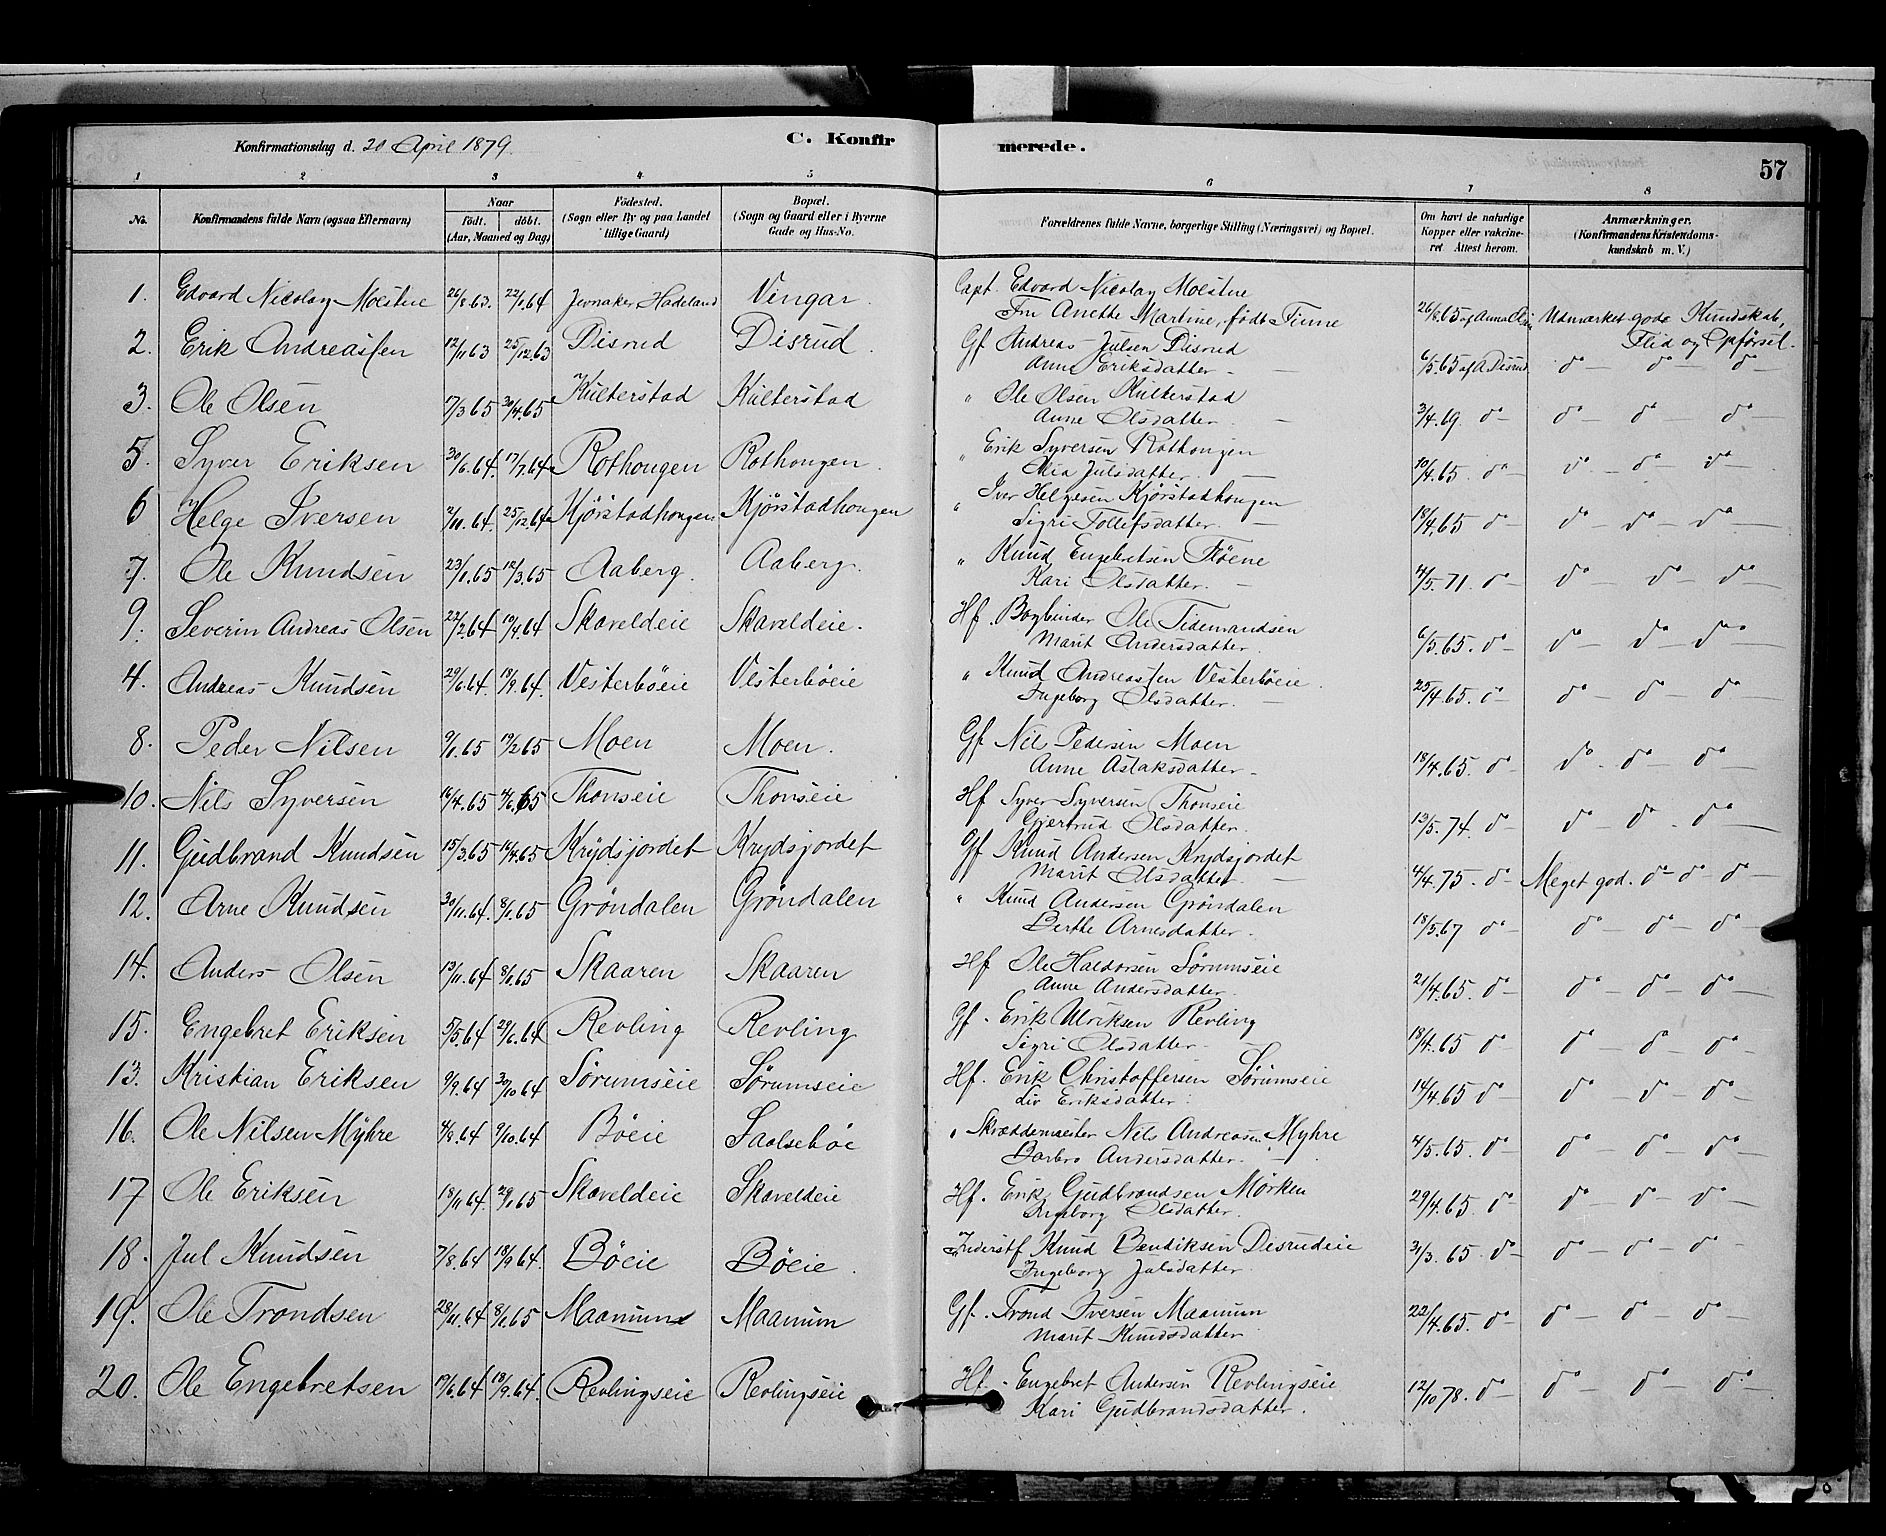 Konfirmationsdag d. 20 April 1879.
C. Konfirmerede.
57
1 2 3 4 5 6 7 8
No. Konfirmandens fulde Navn (ogsaa Efternavn) Naar født. døbt. (Aar, Maaned og Dag) Fødested. (Sogn eller By og paa Landet tillige Gaard) Bopæl. (Sogn og Gaard eller i Byerne Gade og Hus-No. Forældrenes fulde Navne, borgerlige Stilling (Næringsvei) og Bopæl. Om havt de naturlige Kopper eller vakcineret Attest herom. Anmærkninger. (Konfirmandens Kristendomskundskab m. V.)
1. Edvard Nicolay Moestue 26/8.63. 22/1.64 Jevnaker Hadeland Vingar. Capt. Edvard Nicolay Moestue
Fru Anethe Martine, født Finne 26/8.65 af Anna Udmærket gode Kundskab, Flid og Opførsel.
2. Erik Andreassen 12/11.63 25/12.63 Disrud Disrud. Gf Andreas Julsen Disrud
Anne Eriksdatter - 6/5.65 af A. Disrud do - do - do -
3. Ole Olsen 7/3.65 30/4.65 Kulterstad Kulterstad " Ole Olsen Kulterstad
Anne Olsdatter. - 3/4.69 do - do - do - do -
5. Syver Eriksen 30/6.64. 17/7.64 Rothougen Rothougen. " Erik Syversen Rothougen
Mia Julsdatter. - 10/4.65 do - do - do - do -
6 Helge Iversen 2/11.64. 25/12.64 Kjørstadhougen Kjørstadhougen " Iver Helgesen Kjørstadhougen
Sigri Tollefsdatter. - 18/4.65 do - do - do - do -
7. Ole Knudsen 23/1.65 12/3.65 Aaberg. Aaberg. " Knud Engebretsen Fløene
Kari Olsdatter. - 4/5.71. do - do - do - do -
9. Severin Andreas Olsen 22/2.64 10/4.64 Skaveldeie Skaveldeie. Hf. Bogbinder Ole Tidemandsen
Marit Andersdatter. 6/5.65. do - do - do - do -
4. Andreas Knudsen 29/6.64. 18/9.64. Vesterbøeie Vesterbøeie " Knud Andreassen Vesterbøeie.
Ingeborg Olsdatter. - 25/4.65 do - do - do - do -
8. Peder Nilsen 9/1.65 19/2.65 Moen Moen. Gf. Nils Pedersen Moen
Anne Aslaksdatter - 18/4.65. do - do - do - do -
10. Nils Syversen 16/4.65 4/6.65 Thonseie Thonseie Hf Syver Syversen Thonseie
Gjertrud Olsdatter. 13/5.74. do - do - do - do -
11. Gudbrand Knudsen 15/3.65 14/4.65 Krydsjordet Krydsjordet Gf Knud Andersen Krydsjordet
Marit Olsdatter. - 4/4.75. do - Meget god. do - do - do -
12. Arne Knudsen 30/11.64. 8/1.65 Grøndalen Grøndalen " Knud Andersen Grøndalen
Berthe Arnesdatter. 18/5.67 do - do - do - do -
14. Anders Olsen 13/11.64 8/1.65 Skaaren Skaaren Hf Ole Haldorsen Sørumseie
Anne Andersdatter. 21/4.65. do - do - do - do -
15. Engebret Eriksen 5/5.64 29/6.64 Revling Revling Gf. Erik Ulriksen Revling
Sigri Olsdatter. 18/4.65 do - do - do - do -
13. Kristian Eriksen 9/9.64 30/10.64 Sørumseie Sørumseie Hf. Erik Christoffersen Sørumseie
Liv Eriksdatter. 14/4.65 do - do - do - do -
16. Ole Nilsen Myhre 4/8.64 9/10.64 Bøeie Saalsebøe " Skræddemester Nils Andreasen Myhre
Barbro Andersdatter. - 4/5.65. do - do - do - do -
17 Ole Eriksen 18/11.64. 29/1.65 Skaveldeie Skaveldeie Hf. Erik Gudbrandsen Mørken
Ingeborg Olsdatter. 29/4.65. do - do - do - do -
18. Jul Knudsen 7/8.64 18/9.64. Bøeie Bøeie. Inderstf Knud Bendiksen Disrudeie
Ingeborg Julsdatter. 31/3.65. do - do - do - do -
19. Ole Trondsen 28/11.64 8/1.65 Maanum Maanum Gf. Trond Iversen Maanum
Marit Knudsdatter 22/4.65. do - do - do - do -
20. Ole Engebretsen 19/6.64 18/9.64. Revlingseie Revlingseie Hf. Engebret Andersen Revlingseie
Kari Gudbrandsdatter. 12/10.78. do - do - do - do -